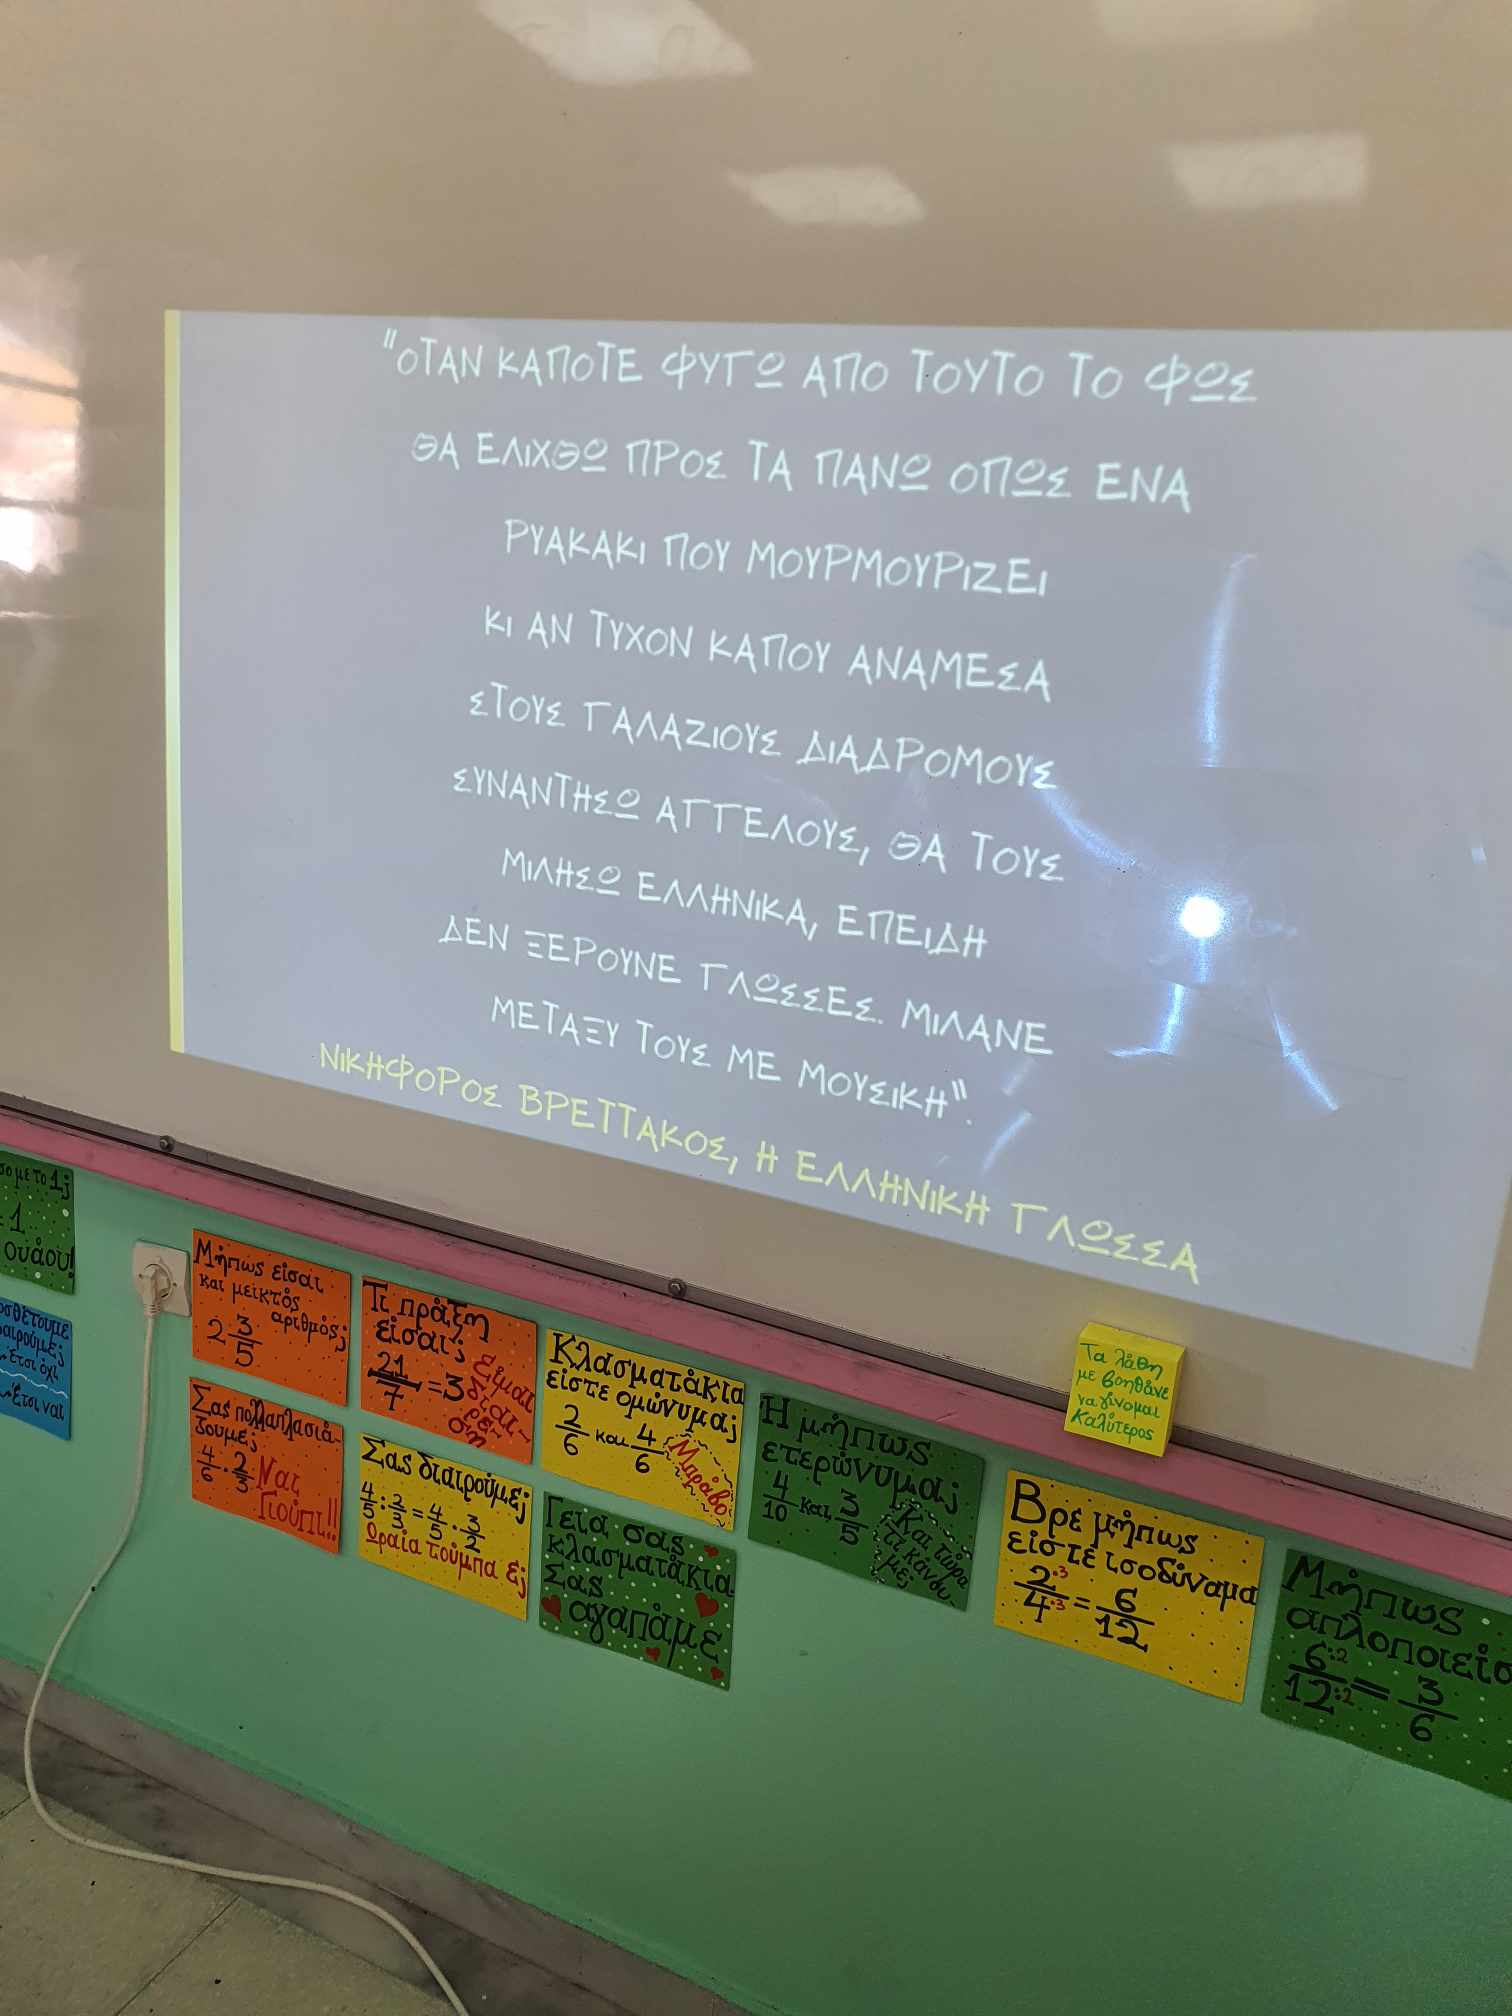 "ΟΤΑΝ ΚΑΠΟΤΕ ΦΥΓΩ ΑΠΟ ΤΟΥΤΟ ΤΟ ΦΩΣ
ΘΑ ΕΛΙΧΘΩ ΠΡΟΣ ΤΑ ΠΑΝΩ ΟΠΩΣ ΕΝΑ
ΡΥΑΚΑΚΙ ΠΟΥ ΜΟΥΡΜΟΥΡΙΖΕΙ
ΚΙ ΑΝ ΤΥΧΟΝ ΚΑΠΟΥ ΑΝΑΜΕΣΑ
ΣΤΟΥΣ ΓΑΛΑΖΙΟΥΣ ΔΙΑΔΡΟΜΟΥΣ
ΣΥΝΑΝΤΗΣΩ ΑΓΓΕΛΟΥΣ, ΘΑ ΤΟΥΣ
ΜΙΛΗΣΩ ΕΛΛΗΝΙΚΑ, ΕΠΕΙΔΗ
ΔΕΝ ΞΕΡΟΥΝΕ ΓΛΩΣΣΕΣ. ΜΙΛΑΝΕ
ΜΕΤΑΞΥ ΤΟΥΣ ΜΕ ΜΟΥΣΙΚΗ".
ΝΙΚΗΦΟΡΟΣ ΒΡΕΤΤΑΚΟΣ, Η ΕΛΛΗΝΙΚΗ ΓΛΩΣΣΑ
με το 1;
1
ουάου!
Έτσι όχι
Έτσι ναι
Μήπως είσαι
και μεικτός
αριθμός;
2 3/5
Σας πολλαπλασιά-
ζουμε;
4/6 · 2/3 Ναι
Γιούπι!!
Τι πράξη
είσαι;
21/7 = 3
Είμαι
διαί-
ρε-
ση
Σας διαιρούμε;
4/5 : 2/3 = 4/5 · 3/2
Ωραία τούμπα ε;
Κλασματάκια
είστε ομώνυμα;
2/6 και 4/6
Μπράβο
Γεια σας
κλασματάκια
Σας
αγαπάμε
Ή μήπως
ετερώνυμα;
4/10 και 3/5
Και τώρα
τι κάνου
με;
Τα λάθη
με βοηθάνε
να γίνομαι
καλύτερος
Βρε μήπως
είστε ισοδύναμα
2·3/4·3 = 6/12
Μήπως
6:2/12:2 = 3/6